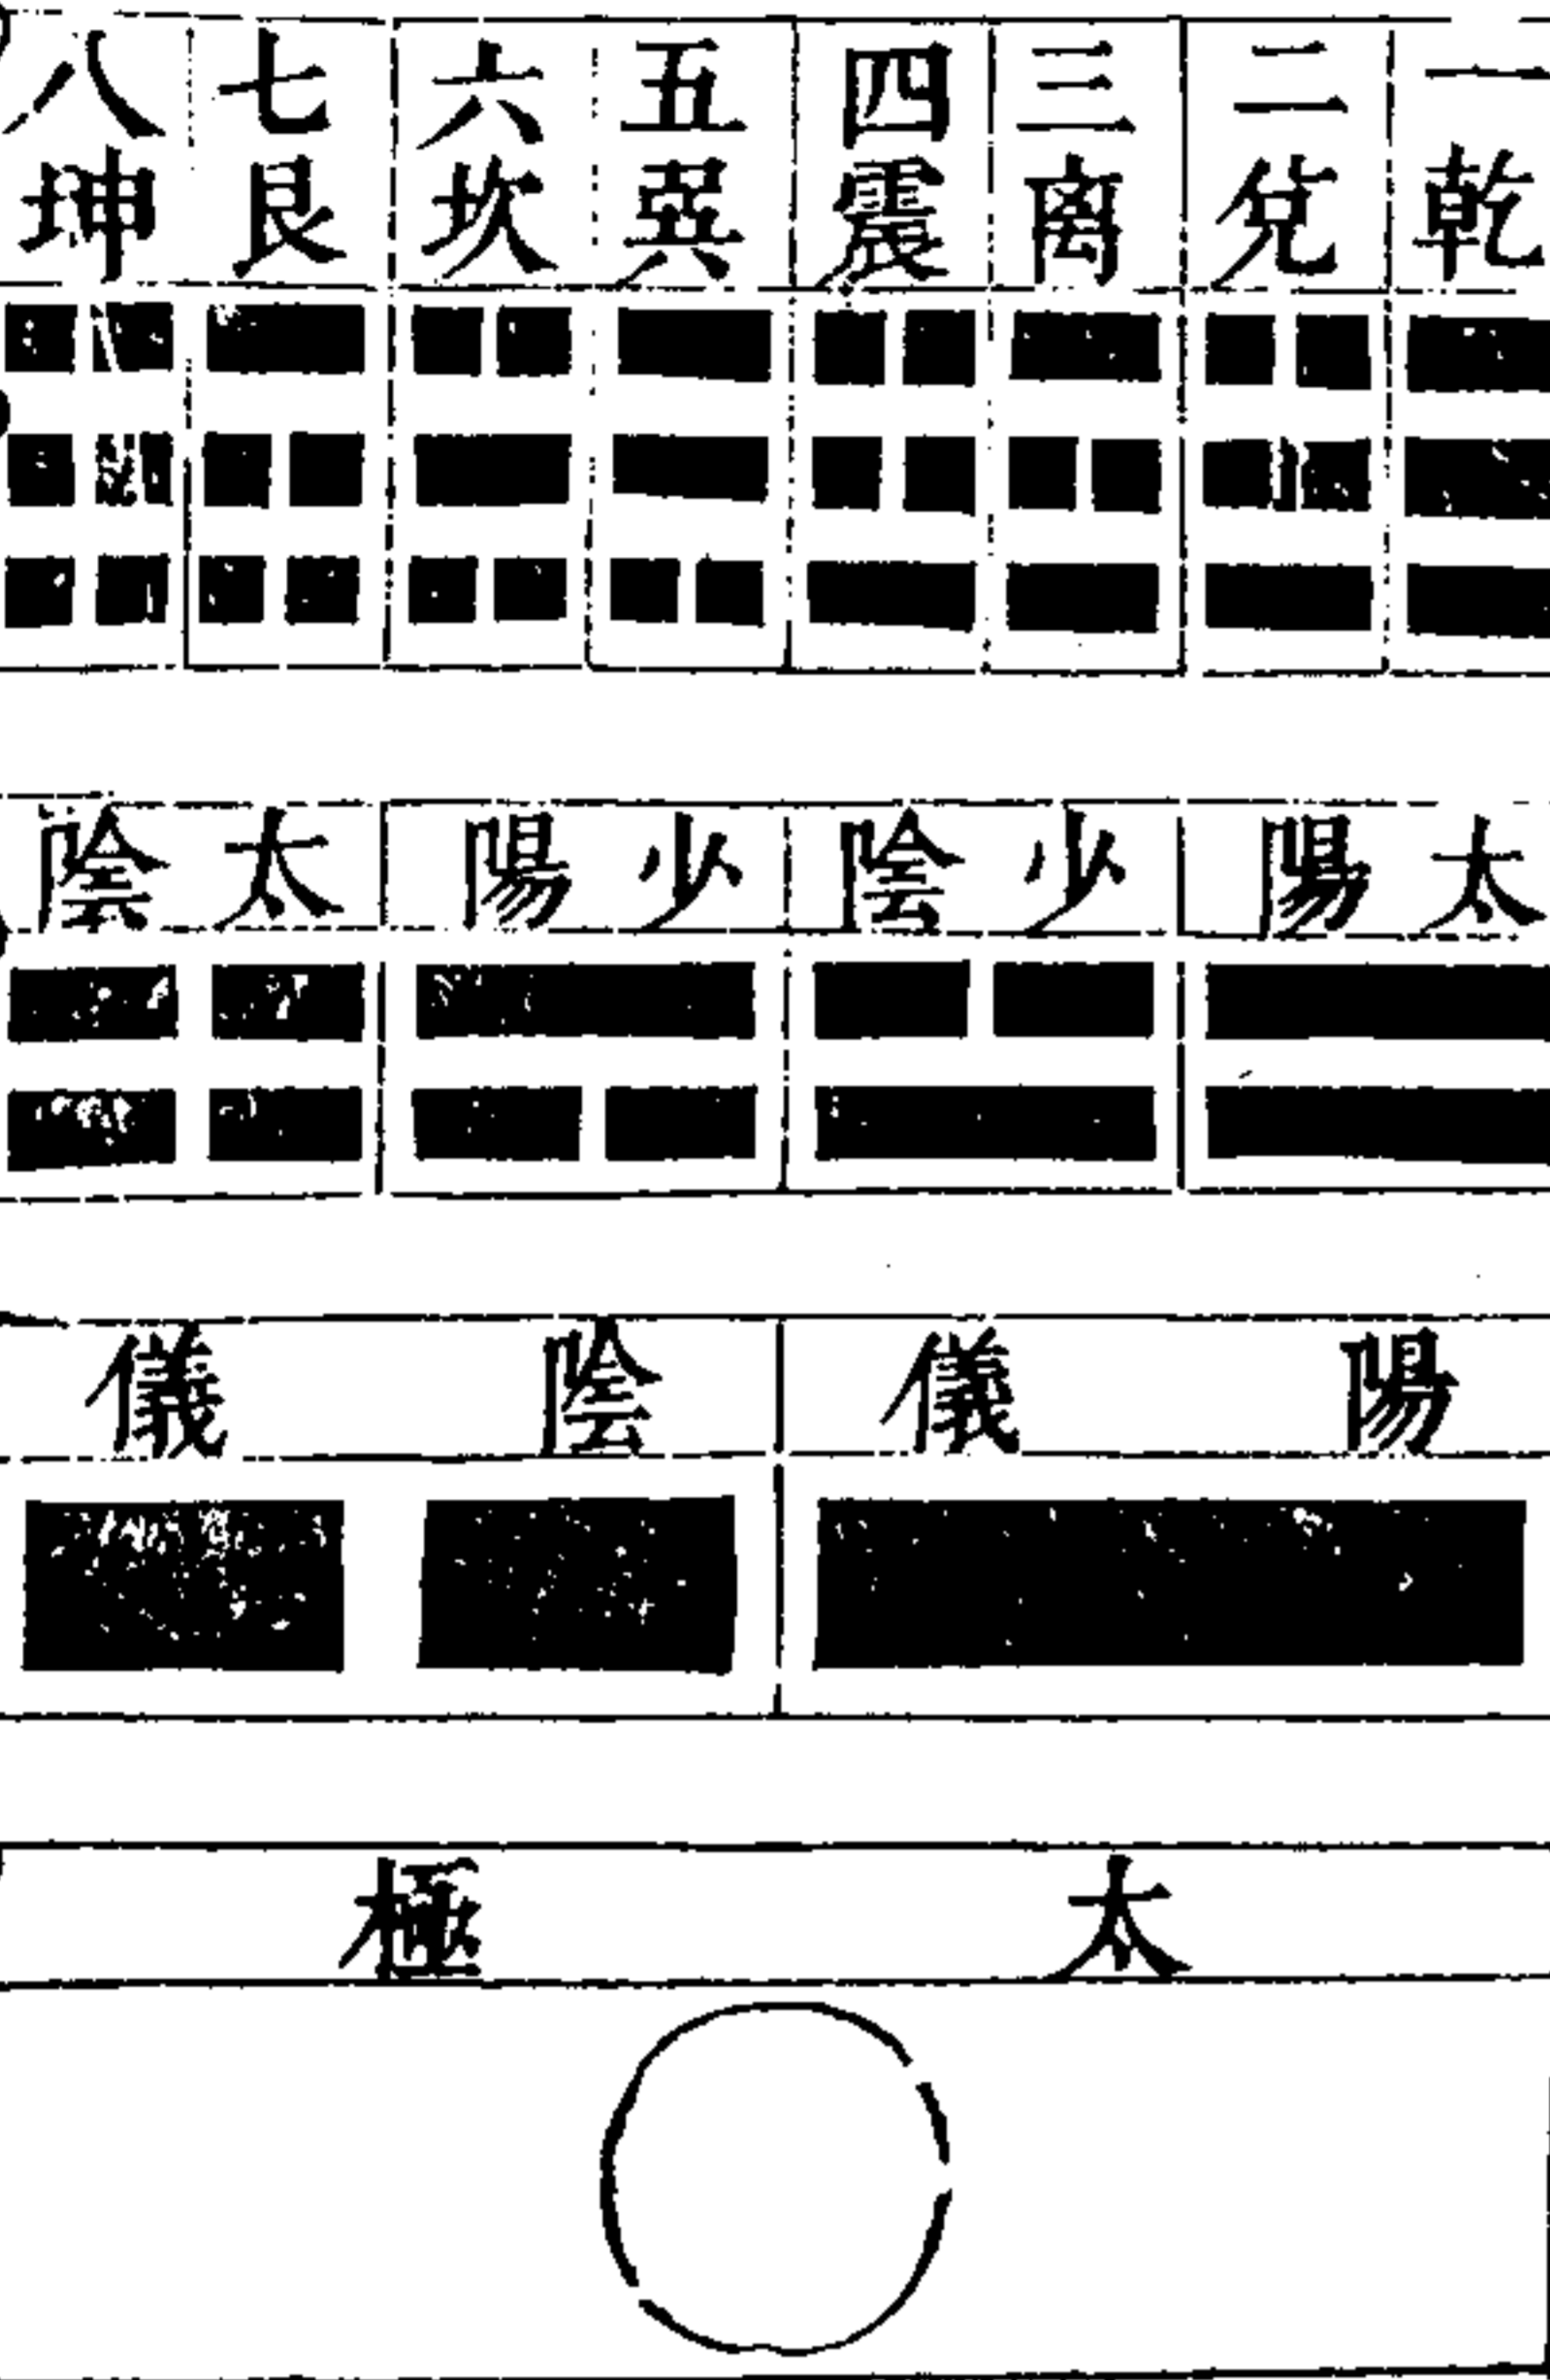 一乾
二兌
三离
四震
五巽
六坎
七艮
八坤
太陽
少陰
少陽
太陰
陽儀
陰儀
太極